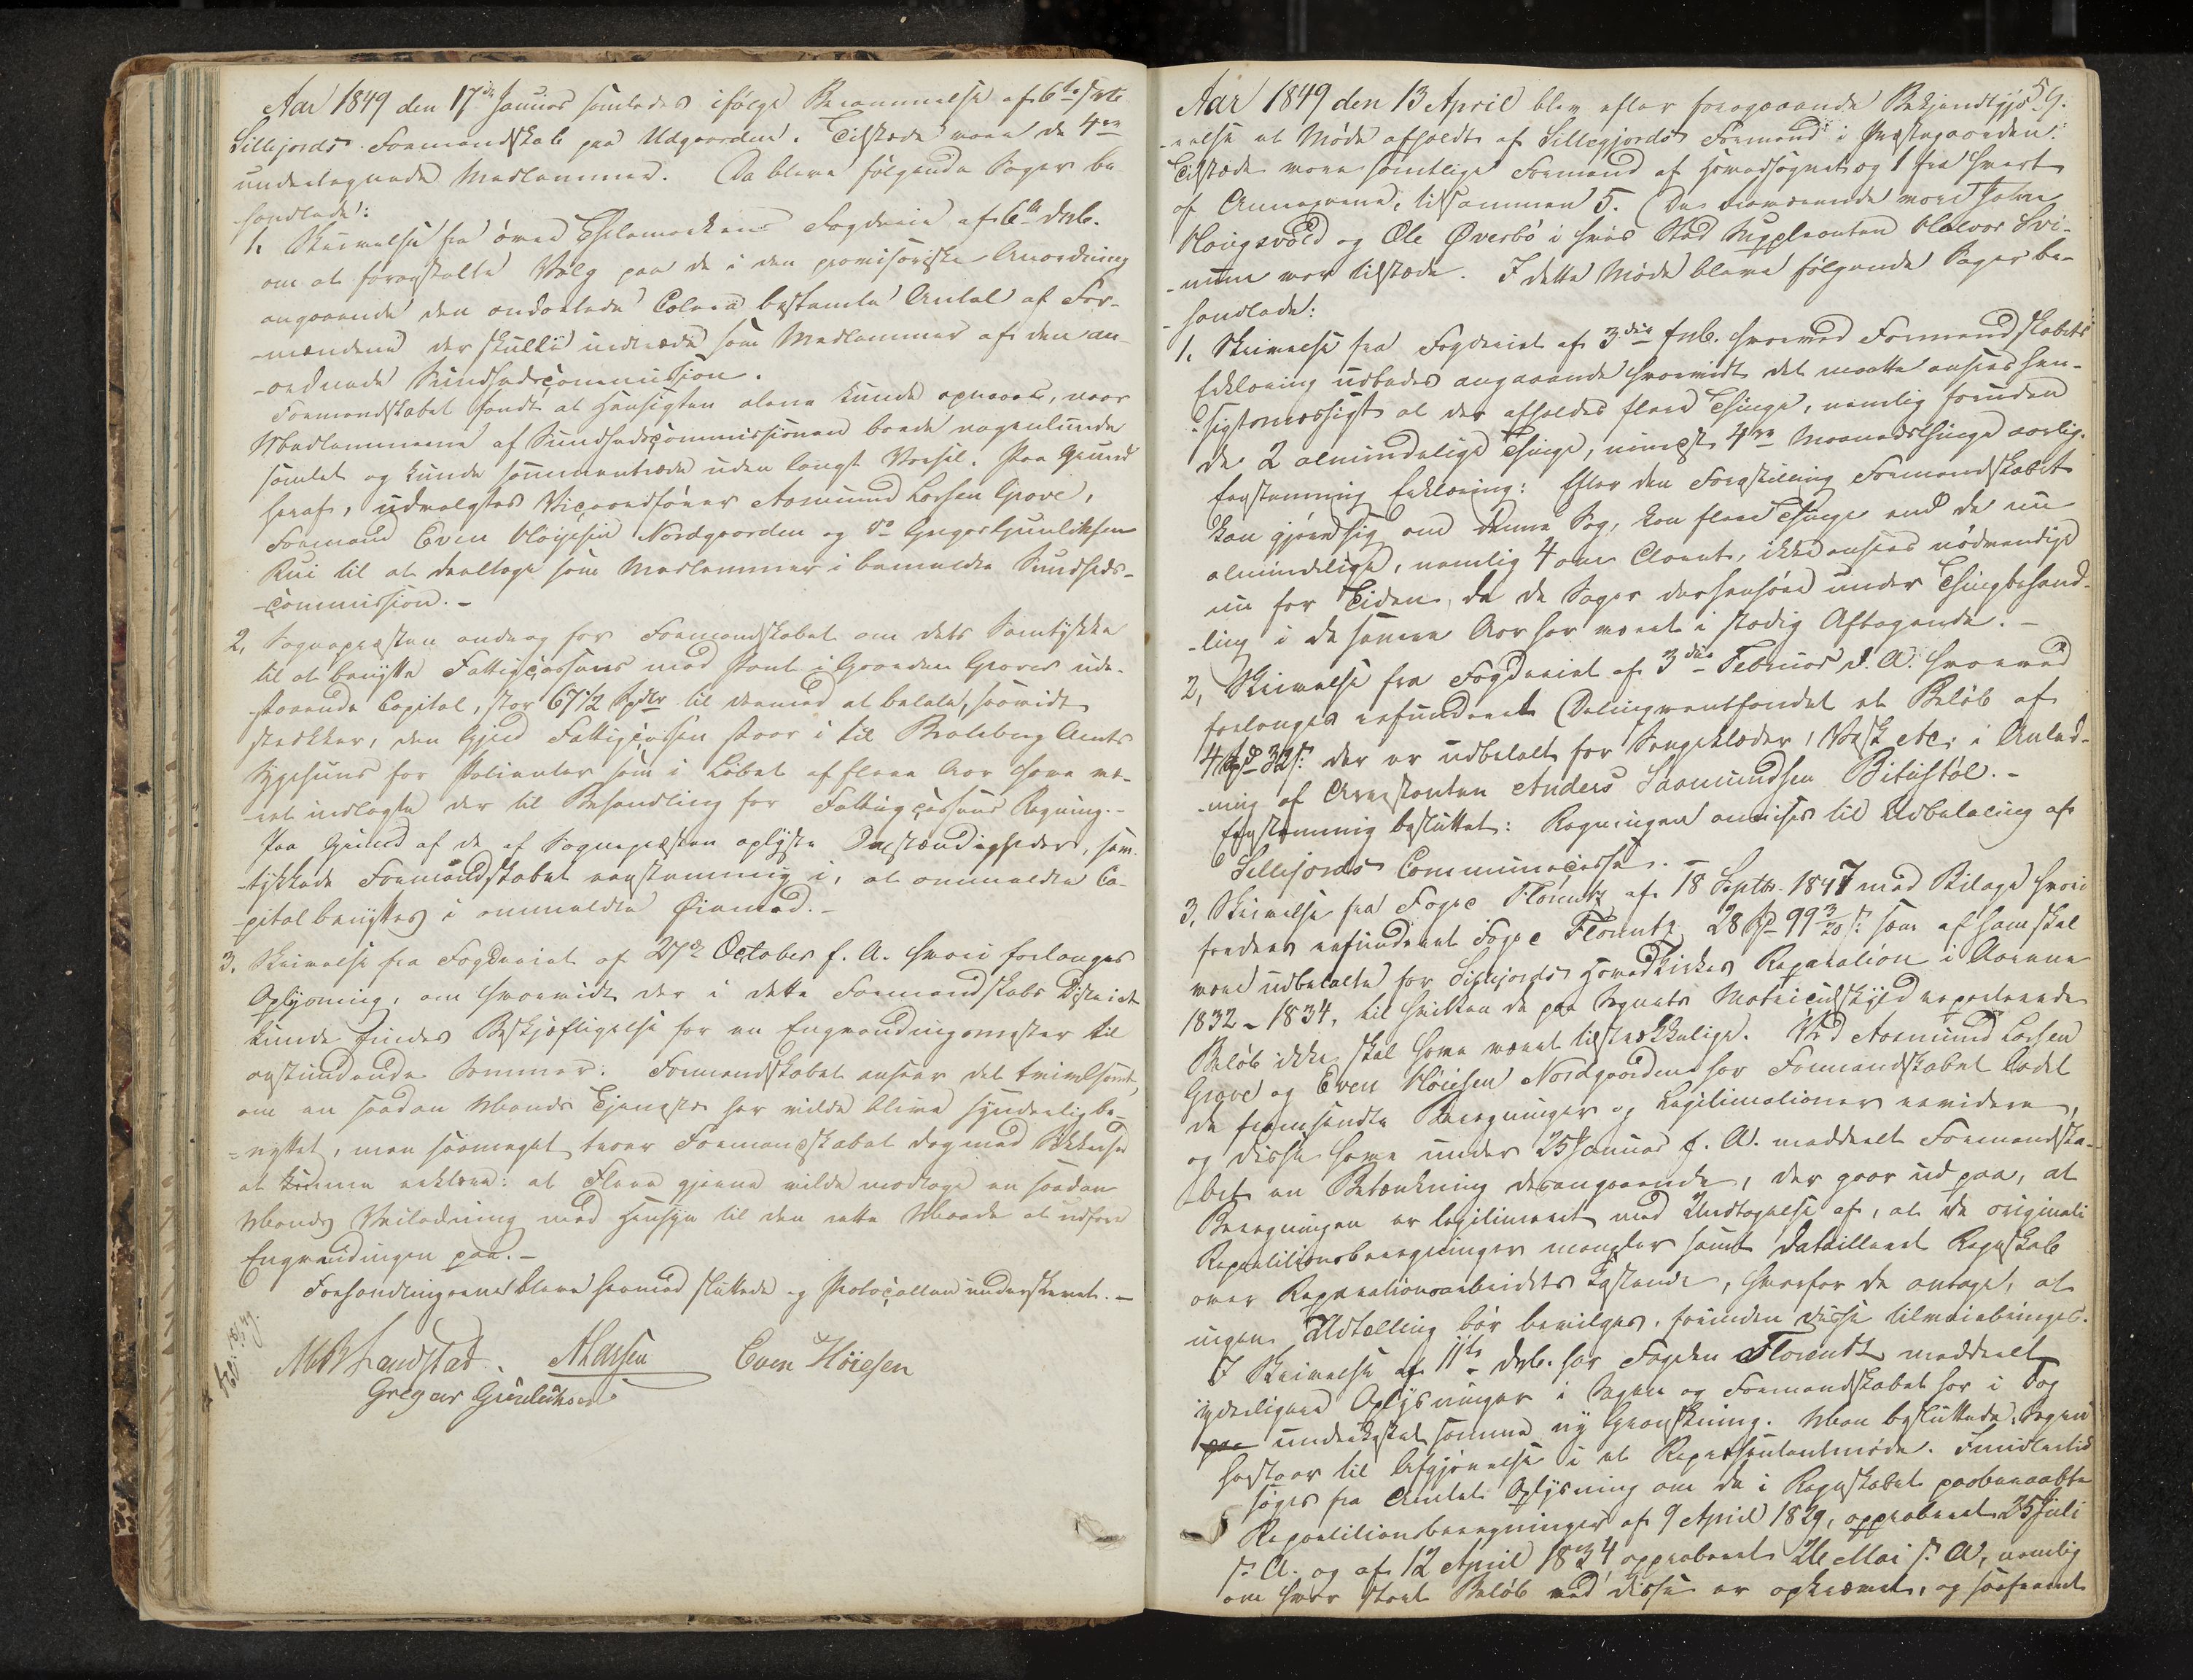 Aar 1849 den 17de Januar samledes ifølge Berammelse af 6te ds
Sillejords Formandskab paa Udgaarden. Tilstede vare de 4re
undertegnede Medlemmer. Da bleve følgende Sager be-
handlede:
1. Skrivelse fra övre Thelemarkens Fogderie af 6te ds.
om at foranstalte Valg paa de i den provisoriske Anordning
angaaende den ondartede Colera bestemte Antal af For-
-mændene der skulle indtræde som Medlemmer af den an-
-ordnede Sundhedscommission.
Formandskabet fandt at Hensigten alene kunde opnaaes, naar
Medlemmerne af Sundhedscommissionen boede nogenlunde
samlet og kunde sammentræde uden langt Varsel. Paa Grund
heraf, udvalgtes Viceordfører Aasmund Larsen Grave,
Formand Even Høigesen Nordgaarden og do Gregar Gunleiksen
Rui til at deeltage som Medlemmer i bemeldte Sundheds-
-commission. -
2, Sognepræsten androg for Formandskabet om dets Samtykke
til at benytte Fattigcassens mod Pant i Gaarden Graver ude-
-staaende Capital, stor 67 1/2 Spdlr til dermed at betale, saavidt
strækker, den Gjæld Fattigcassen staar i til Bratsberg Amts
Sygehuus for Patienter som i Løbet af flere Aar have væ-
-ret indlagte der til Behandling for Fattigcassens Regning. -
Paa Grund af de af Sognepræsten oplyste Omstændigheder, sam-
-tykkede Formandskabet eenstemmig i, at ommeldte Ca-
-pital benyttes i ommeldte Øiemed. -
3. Skrivelse fra Fogderiet af 27de October f. A. hvori forlanges
Oplysning, om hvorvidt der i dette Formandskabs District
kunde findes Beskjæftigelse for en Engvandingsmester til
anstundende Sommer. Formandskabet anseer det tvivlsomt,
om en saadan Mands Tjeneste her vilde blive synderlig be-
-nyttet, men saameget troer Formandskabet dog med Sikkerhed
at kunne erklære: at Flere gjerne vilde modtage en saadan
Mands Veiledning med Hensyn til den rette Maade at udføre
Engvandingen paa. -
Forhandlingerne bleve hermed sluttede og Protocollen underskrevet. -
MB Landstad. ALarsen Even Høiesen
Gregar Gunleiksen
59.
Aar 1849 den 13 April blev efter foregaaende Bekjendtgjø-
-relse et Møde afholdt af Sillegjords Formænd i Præstegaarden.
Tilstede vare samtlige Formænd af Hovedsognet og 1 fra hvert
af Annexerne, tilsammen 5. De fraværende vare John
Haugsvold og Ole Øverbö i hvis Sted Suppleanten Halvor Svi-
-num var tilstede. I dette Møde bleve følgende Sager be-
-handlede:
1, Skrivelse fra Fogderiet af 3die Feb. hvorved Formandskabets
Erklæring udbedes angaaende hvorvidt det maatte ansees hen-
-sigtsmæssigt at der afholdes flere Thinge, nemlig foruden
de 2 almindelige Thinge, mindst 4re Maanedsthinge aarlig.
Eenstemmig Erklæring: Efter den Forestilling Formandskabet
kan gjøre sig om denne Sag, kan flere Thinge end de nu
almindelige, nemlig 4 om Aaret, ikke ansees nødvendige
nu for Tiden, da de Sager derhenhøre under Thingbehand-
-ling i de senere Aar har været i stadig Aftagende. -
2, Skrivelse fra Fogderiet af 3die Februar d. A. hvorved
forlanges refunderet Delinqventfondet et Beløb af
4 Spd 32 s: der er udbetalt for Sengeklæder, Vask etc. i Anled-
-ning af Arrestanten Anders Saamundsen Bitustöl. -
Eenstemmig besluttet: Regningen anvises til Udbetaling af
Sillejords Communecasse. -
3, Skrivelse fra Foged Florentz af 18 Septbr. 1847 med Bilage hvori
fordres refunderet Foged Florentz 28 Sp 99 3/20 s: som af ham skal
være udbetalte for Sillejords Hovedkirkes Reparation i Aarene
1832 - 1834, til hvilken de paa Sognets Matriculskyld reparterede
Beløb ikke skal have været tilstrækkelige. Ved Aasmund Larsen
Grave og Even Høiesen Nordgaarden har Formandskabet ladet
de fremsendte Beregninger og Legitimationer revidere,
og disse have under 25 Januar f. A. meddeelt Formandska-
bet en Betænkning derangaaende, der gaar ud paa, at
Beregningen er legitimeret med Undtagelse af, at de originale
Repartitionsberegninger mangler samt detailleret Regnskab
over Reparationsarbeidets Kostende, hvorfor de antage, at
ingen Udtælling bør bevilges, forinden disse tilveiebringes.
I Skrivelse af 11te ds. har Fogden Florentz meddeelt
yderligere Oplysninger i Sagen og Formandskabet har i Dag
underkastet samme ny Granskning. Man besluttede: Sagen
henstaar til Afgjørelse i et Repræsentantmøde. Imidlertid
søges fra Amtet Oplysning om de i Regnskabet paaberaabte
Repartitionsberegninger af 9 April 1829, approberet 25 Juli
s: A. og af 12 April 1834 approberet 26 Mai s: A, nemlig
om hvor stort Beløb ved disse er opkrævet, og saafremt